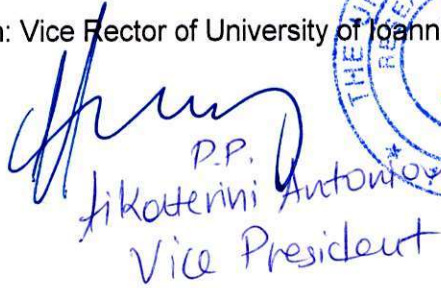 n: Vice Rector of University of Ioann
THE
RESE
P.P.
Aikaterini Antoniou
Vice President